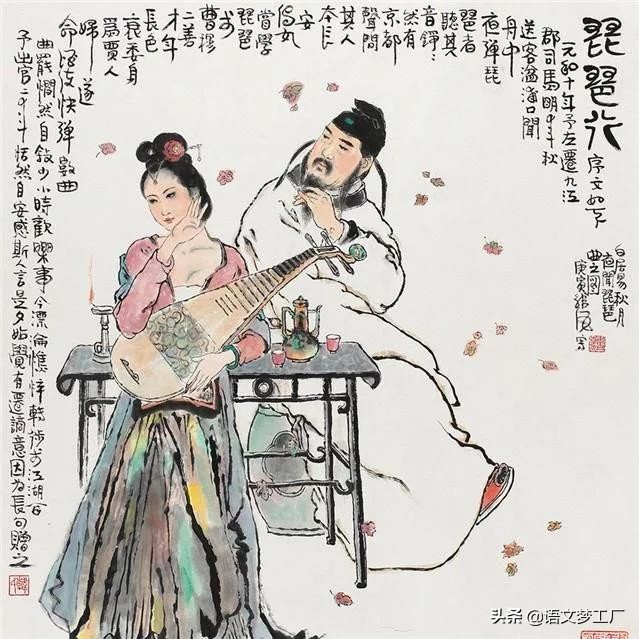 琵琶行 序文如下
元和十年予左遷九江
郡司馬明年秋
送客湓浦口聞
舟中
夜彈琵
琶者
聽其
音錚
然有
京都
聲問
其人
本長
安
倡女
嘗學
琵琶
於
曹穆
二善
才年
長色
衰委身
爲賈人
婦 遂
命酒使快彈數曲
曲罷憫然自敘少小時歡樂事今漂淪憔悴轉徙於江湖
予出官二年恬然自安感斯人言是夕始覺有遷謫意因为長句贈之
白居易秋月
夜聞琵琶
曲之圖
庚寅
头条 @语文梦工厂